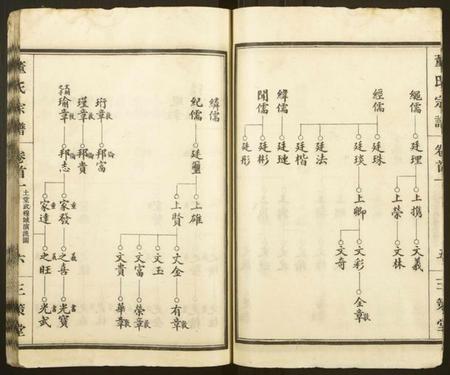 董氏宗譜 卷首一 五 三策堂
繩儒 經儒 緯儒 聞儒
廷理 廷珠 廷琰 廷法 廷楷 廷璉 廷彬 廷彤
上攜 上榮 上卿
文義 文林 文彩 文奇
金章
繡儒 紀儒 珩章 瑾章 瑜章
廷璽 邦富 邦貴 邦志
上雄 上賢 家發 家達
文金 文玉 文富 文貴 之喜 之旺
有章 榮章 華章 光寶 光武
董氏宗譜 卷首一 土堂武程城演流圖 六 三策堂